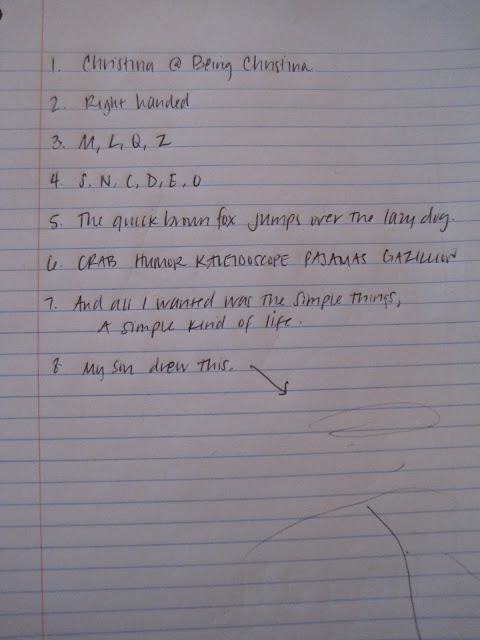 1. Christina @ Being Christina
2. Right handed
3. M, L, Q, Z
4. S, N, C, D, E, O
5. The quick brown fox jumps over the lazy dog.
6. CRAB HUMOR KALEIDOSCOPE PAJAMAS GAZILLION
7. And all I wanted was the simple things,
A simple kind of life.
8. My son drew this.